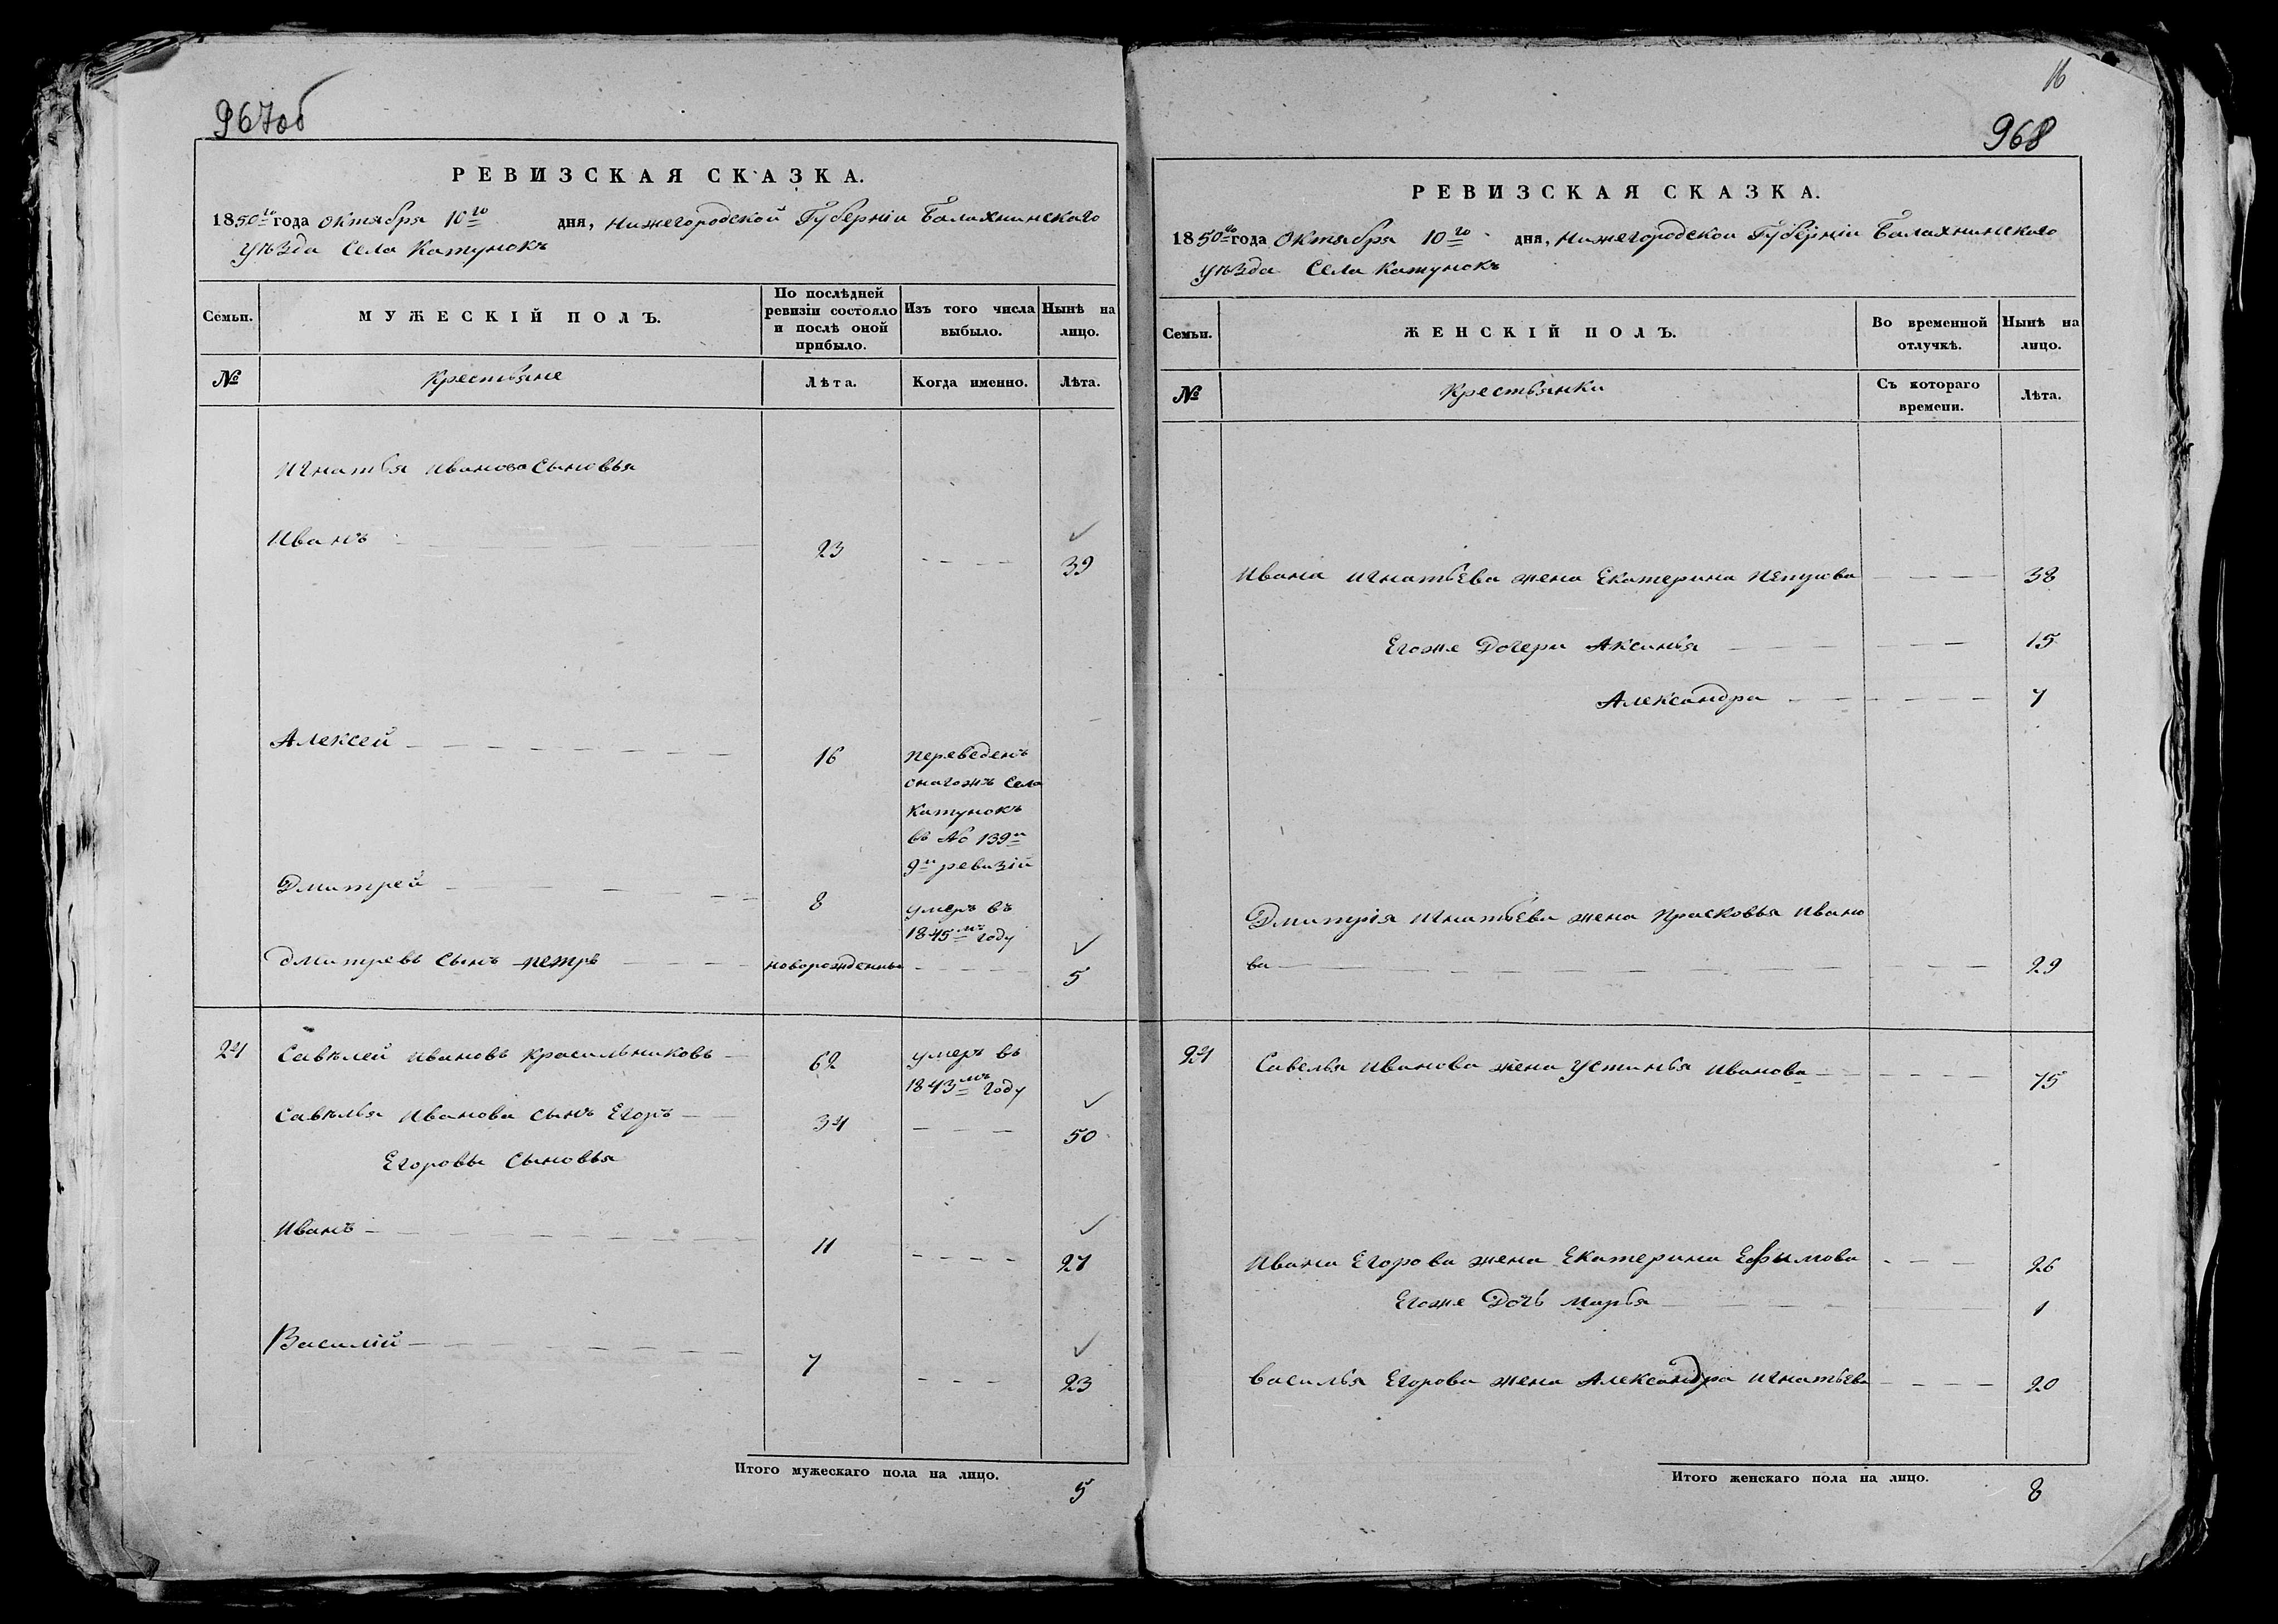 967об
РЕВИЗСКАЯ СКАЗКА.
1850го года Октября 10го дня, Нижегородской Губерніи Балахнинского
уѣзда Села Катунокъ
Семьи.
МУЖЕСКІЙ ПОЛЪ.
По послѣдней ревизіи состояло и послѣ оной прибыло.
Изъ того числа выбыло.
Нынѣ на лицо.
№
Крестьяне
Лѣта.
Когда именно.
Лѣта.
Игнатья Иванова сыновья
Иванъ 23 39
Алексей 16 переведенъ
Села
Катунокъ
въ № 139й
9й ревизій
Дмитрей 8 умеръ въ
1845мъ году
Дмитревъ сынъ петръ новорожденны 5
24 Савѣлей Ивановъ Красильниковъ 62 умеръ въ
1843мъ году
Савѣлья Иванова сынъ Егоръ 34 50
Егоровы Сыновья
Иванъ 11 27
Василій 7 23
Итого мужескаго пола на лицо. 5
16
968
РЕВИЗСКАЯ СКАЗКА.
1850го года Октября 10го дня, Нижегородской Губерніи Балахнинского
уѣзда Села Катунокъ
Семьи.
ЖЕНСКІЙ ПОЛЪ.
Во временной отлучкѣ.
Нынѣ на лицо.
№
Крестьянки
Съ котораго времени.
Лѣта.
Ивана Игнатьева жена Екатерина Петрова 38
Егоже Дочери Аксинья 15
Александра 7
Дмитрія Игнатьева жена Прасковья Ивано
ва 29
24 Савелья Иванова жена Устинья Иванова 75
Ивана Егорова жена Екатерина Ефымова 26
Егоже Дочь Марья 1
Василья Егорова жена Александра Игнатьева 20
Итого женскаго пола на лицо. 8